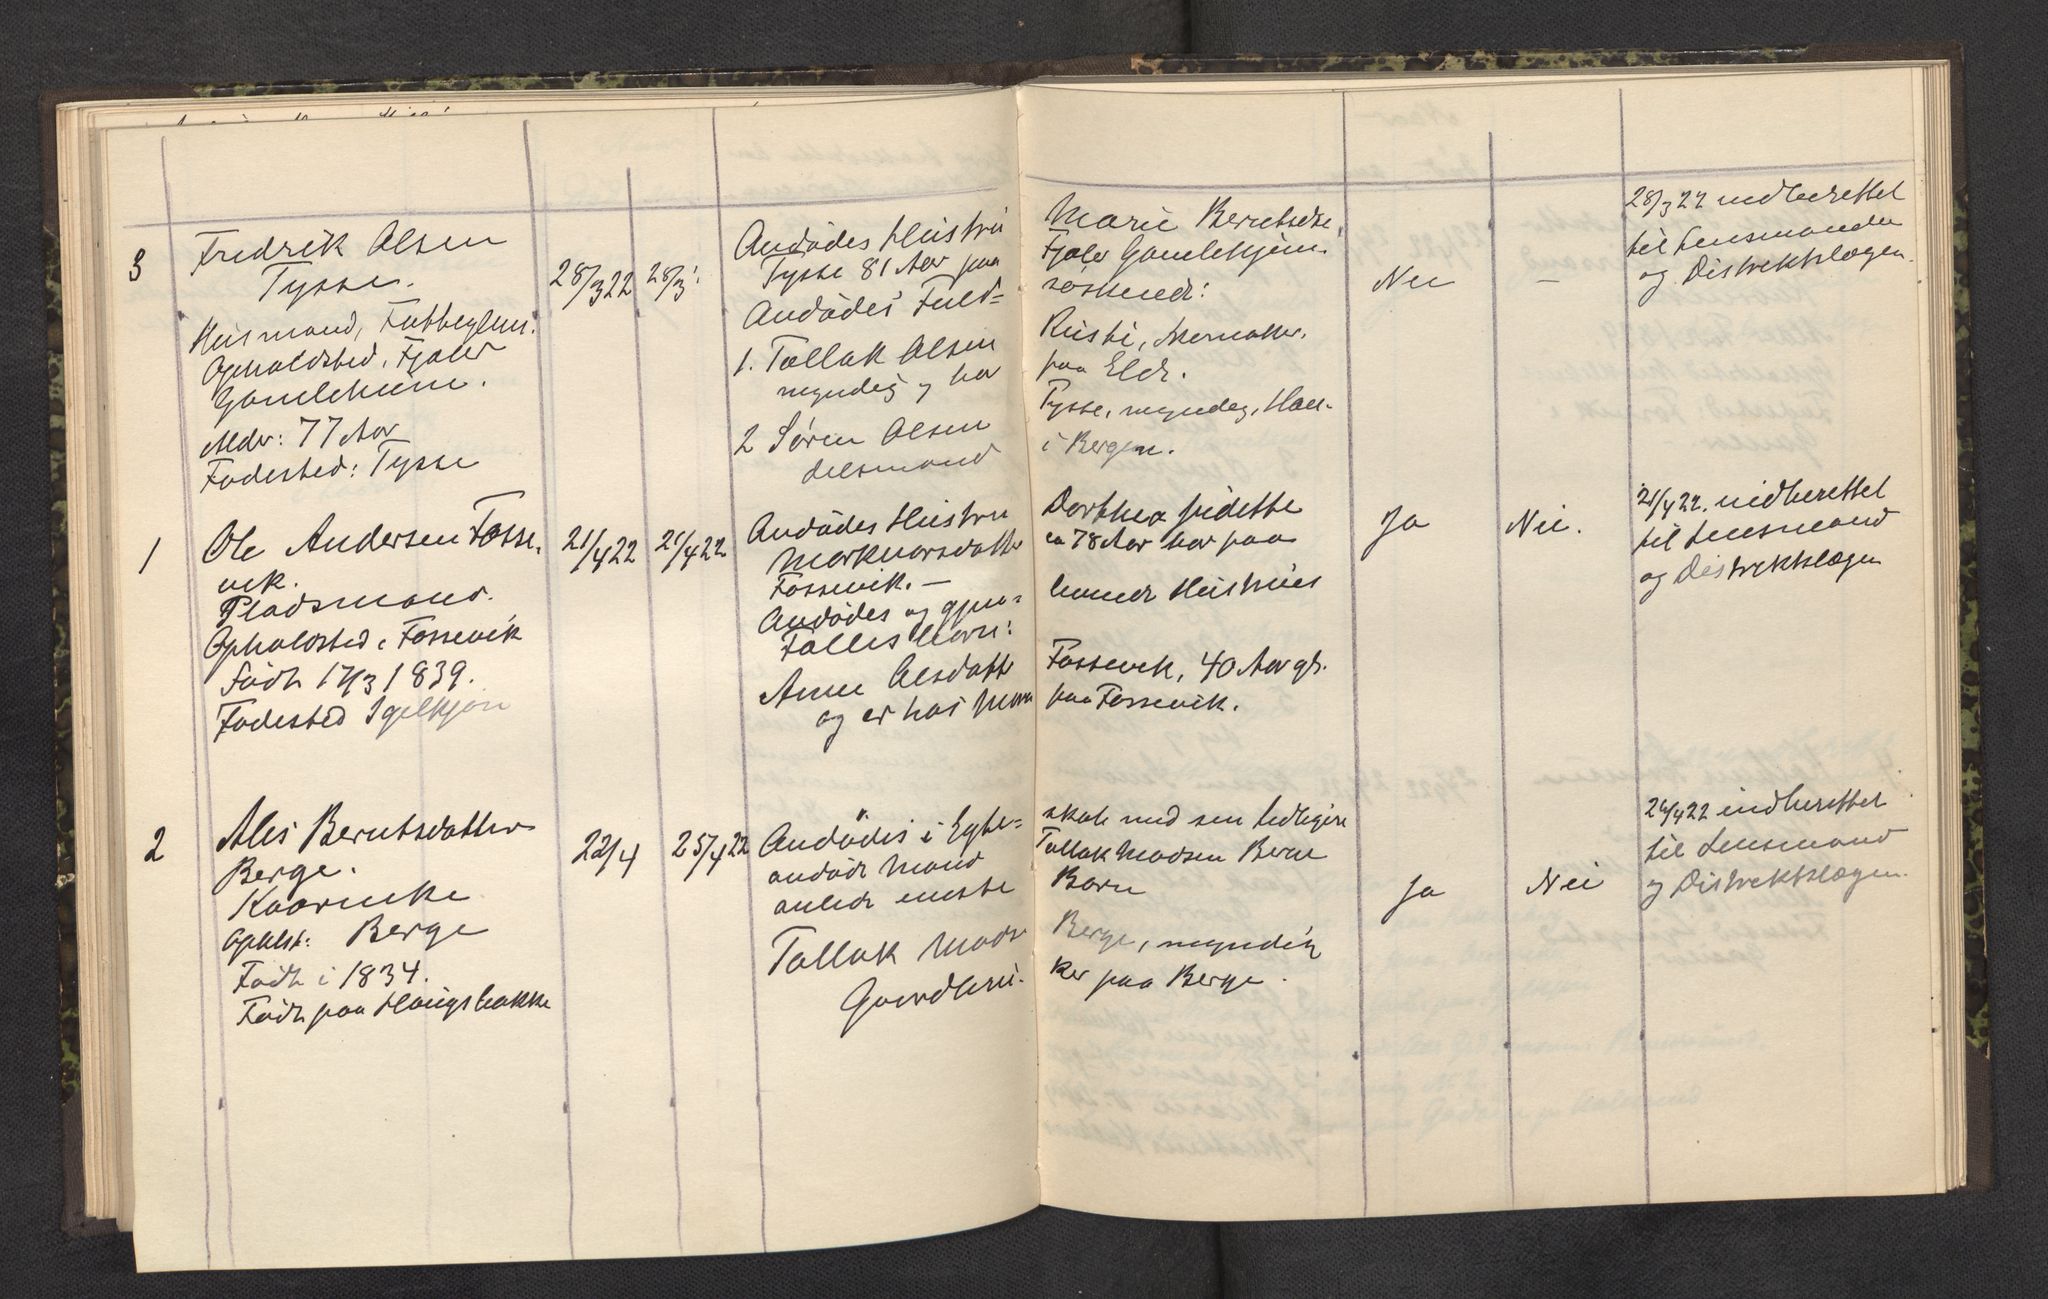 3
Fredrik Olsen
Tysse.
Husmand, Fattiglem.
Opholdsted, Fjaler
Gamlehiem.
Alder: 77 Aar
Fødested: Tysse
28/3 22
28/3
Avdødes Hustru
Tysse 81 Aar paa
Avdødes Fuld=
1. Tollak Olsen
myndig og bor
2 Søren Olsen
delsmand
Marie Berntsdtr
Fjaler Gamlehjem.
søskende:
paa Elde.
Tysse, myndig, Han-
i Bergen.
Nei
—
28/3 22 indberettet
til Lensmanden
og Distriktslægen.
1
Ole Andersen Fosse-
vik.
Pladsmand.
Opholdsted: Fossevik
Født 17/3 1839.
Fødested Igelkjøn
21/4 22
21/4 22
Avdødes Hustru
Markvorsdatter
Fossevik. —
Avdødes og gjen=
Fælles Barn:
Anne Olsdatter
og er hos Mora
Dorthea
ca 78 Aar bor paa
Hustrues
Fossevik, 40 Aar gl.
paa Fossevik.
Ja
Nei.
21/4 22. indberettet
til Lensmand
og Distriktslægen
2
Alis Berntsdatter
Berge.
Kaarenke
Opholst: Berge
Født i 1834.
Født paa Haugsbakke
22/4
25/4 22
Avdødes i Egte=
avdøde Mand
avlede eneste
Tollak Mads
Gaardbru.
skab med sin tidligere
Tollak Madsen Berge
Barn
Berge, myndig
ker paa Berge.
Ja
Nei
26/4 22 indberettet
til Lensmand
og Distriktslægen.